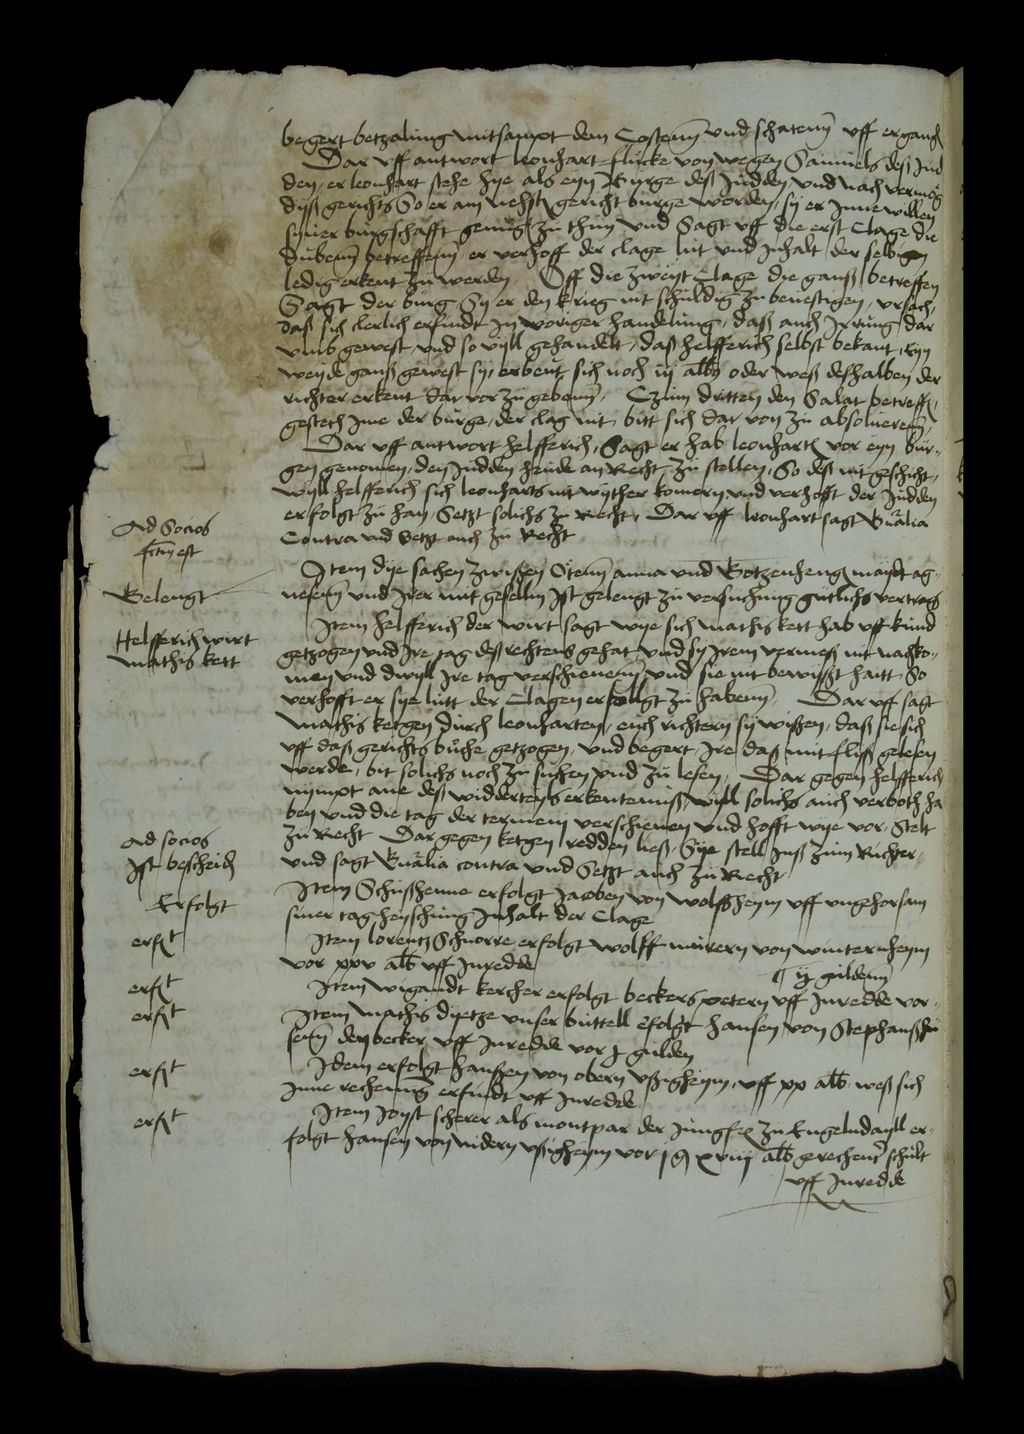 begert betzalung mitsampt dem Costenn und schatenn uff ergangē
Dar uff antwort leonhart flucke von wegen Samuels deß Jud
den, er leonhart stehe hye als eyn Burge deß Judden und nach vermog
dyß gerichts So er am nehstē gericht burge worden, sy er Inne willen
siner burgschafft genug zu thun und Sagt uff die erst Clage die
dubenn betreffenn er verhoff der clage lut und Inhalt der selbigen
ledig erkent zu werden Uff die zweyt Clage die ganß betreffen
Sagt der burg Sy er den krieg nit schuldig zu benestigen, ursach,
daß sich clerlich erfindt In voriger handelung, daß auch Irrung dar
umb gewest, und so vyll gehandelt, daß helfferich selbst bekant, Eyn
weyde ganß gewest sy, erbeut sich noch iij alb oder weß deßhalben der
richter erkent dar vor zu gebenn, Czum dritten den Salat betreffē,
gestech Ime der burge, der clag nit, bitt sich dar von zu absoluerenn,
Dar uff antwort helfferich, Sagt er hab leonhartē vor eyn bur-
gen genomen, den Judden heude an Recht zu stellen, So deß nit geschicht,
wyll helfferich sich leonharts nit wyther komern und verhofft der Judden
erfolgt zu han, Setzt solichs zu Recht, Dar uff leonhart sagt Gnralia
Contra und Setzt auch zu Recht
Ad Socios
ftm est
Item dye sachen zwißen Otenn anna und Botzenheng mayde ag-
nesenn und Irer mit gesellen Ist gelengt zu versuchung gutlichs vertrags
Gelengt
Item helfferich der wirt sagt wye sich mathis kett hab uff kund
getzogen und Ire tag deß rechtens gehat und sy Irem vermeß nit nachko-
men und dwyll Ire tag verschienenn und sie nit bewyßt hait, So
verhofft er sye lutt der Clagen erfollgt zu habenn, Dar uff sagt
mathis ketgen durch leonharten, euch richtern sy wißen, daß sie sich
uff daß gerichts buche getzogen, und begert, Ire daß mit fliß gelesen
werde, bit solichs noch zu suchen und zu lesen, Dar gegen helfferich
nympt ane deß widderteyls erkentenniß, wyll solichs auch verboth ha
ben und die tag der terminey verschienen und hofft wye vor, Stelt
zu Recht Dar gegen ketgen redden ließ, Sye stell Inß zum Richter,
und sagt Gnralia contra und Setzt auch zu Recht
Helfferich wirt
mathis kett
Ad socios
Ist bescheidē
Item Schusshenne erfolgt Jacoben von wolffsheym uff ungehorsam
siner tag heyschung Inhalt der Clage
Erfolgt
Item lorentz Schnorre erfolgt wolff murern von winternheym
vor xxv alb uff Inredde
erft
¶ ij guldenn
Item wigandt kercher erfolgt beckers petern uff Inredde vor-
erft
Item mathis dyetze unser buttell erfolgt hansen von Stephanßhu
senn den becker uff Inredde vor j gulden
erft
Idem erfolgt hanßen von obern ussigheym, uff xx alb weß sich
Inne rechenung erfindt uff Inredde
erft
Item Joyst scherer als montpar der Jungfrē zu Engelndayll er-
folgt hansen von nidern ussigheym vor j g xviij alb gerechent schult
uff Inredde
erft